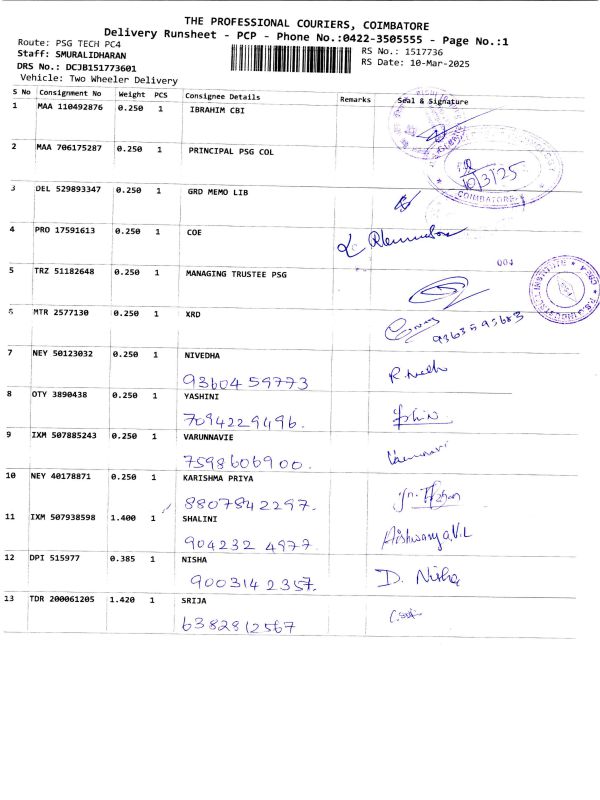 THE PROFESSIONAL COURIERS, COIMBATORE
Delivery Runsheet - PCP - Phone No.:0422-3505555 - Page No.:1
Route: PSG TECH PC4
RS No.: 1517736
Staff: SMURALIDHARAN
RS Date: 10-Mar-2025
DRS No.: DCJB151773601
Vehicle: Two Wheeler Delivery
S No Consignment No Weight PCS Consignee Details Remarks Seal & Signature
1 MAA 110492876 0.250 1 IBRAHIM CBI
2 MAA 706175287 0.250 1 PRINCIPAL PSG COL
10/3/25
COIMBATORE
3 DEL 529893347 0.250 1 GRD MEMO LIB
4 PRO 17591613 0.250 1 COE
004
5 TRZ 51182648 0.250 1 MANAGING TRUSTEE PSG
6 MTR 2577130 0.250 1 XRD
9363593683
7 NEY 50123032 0.250 1 NIVEDHA
9360459773
8 OTY 3890438 0.250 1 YASHINI
7094229496.
9 IXM 507885243 0.250 1 VARUNNAVIE
7598606900.
10 NEY 40178871 0.250 1 KARISHMA PRIYA
8807842297.
11 IXM 507938598 1.400 1 SHALINI
904232 4977. Aishwarya.V.L
12 DPI 515977 0.385 1 NISHA
9003142357. D. Nisha
13 TDR 200061205 1.420 1 SRIJA
6382812567